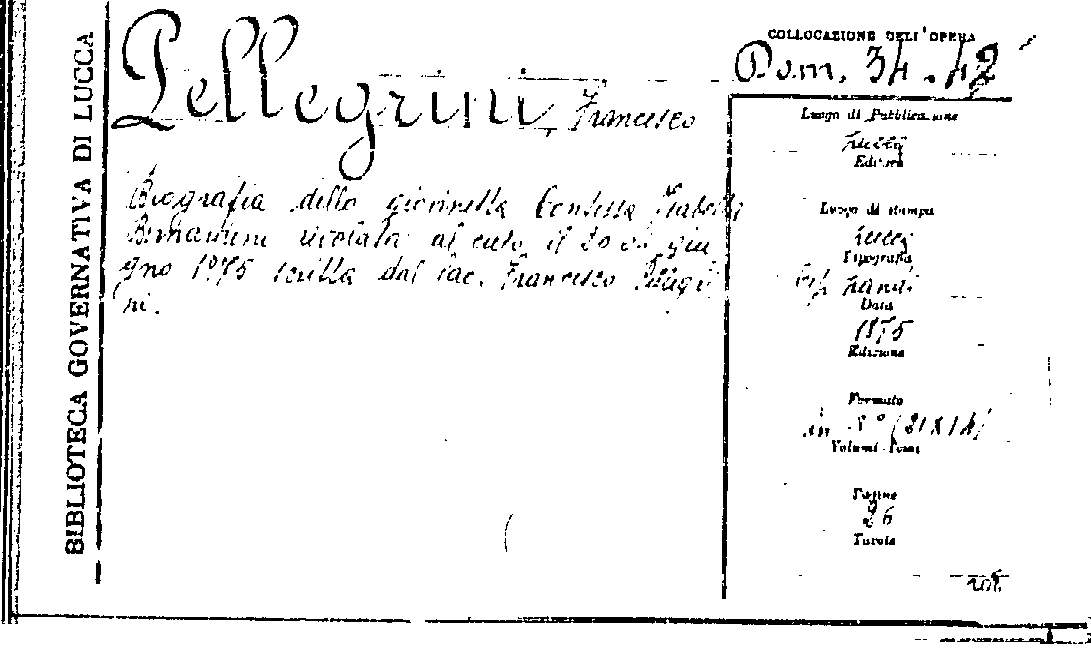 BIBLIOTECA GOVERNATIVA DI LUCCA
Pellegrini, Francesco
Biografia della giovinetta Contessa
volata al cielo il 20 di giu
gno 1875 scritta dal sac. Francesco
ni.
COLLOCAZIONE DELL'OPERA
34.42
Luogo di Pubblicazione
Lucca
Editore
Luogo di stampa
Lucca
Tipografia
Tip. Landi
Data
1875
Edizione
Formato
in 8° (21x14)
Volumi-Tomi
Pagine
26
Tavole